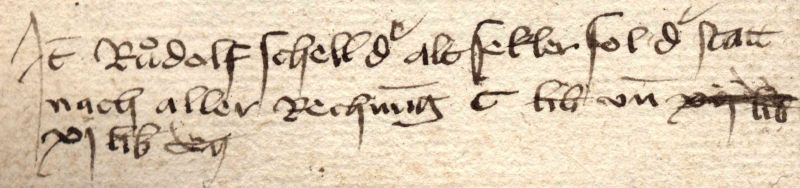 It Růdolf schell dͤ alt sekler sol dͤ statt
nach aller Rechnūg C lib vn̄ xij lib
xj lib